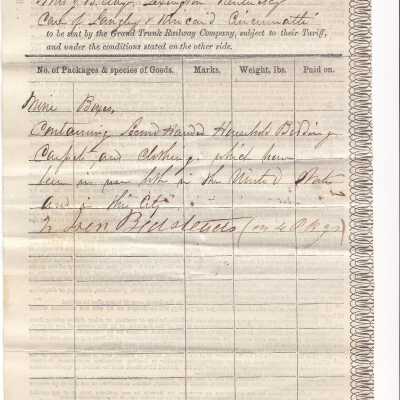 Mrs J. B. Clay, Lexington Kentucky
Care of Langley & Kincaid Cincinnatti
to be sent by the Grand Trunk Railway Company, subject to their Tariff,
and under the conditions stated on the other side.
No. of Packages & species of Goods. Marks. Weight, lbs. Paid on.
Nine Boxes,
Containing Second Handed Household Bedding
Carpets, and clothing, which have
been in use both in the United States
and in this City
2 Iron Bedsteads (in 4 Pkgs)